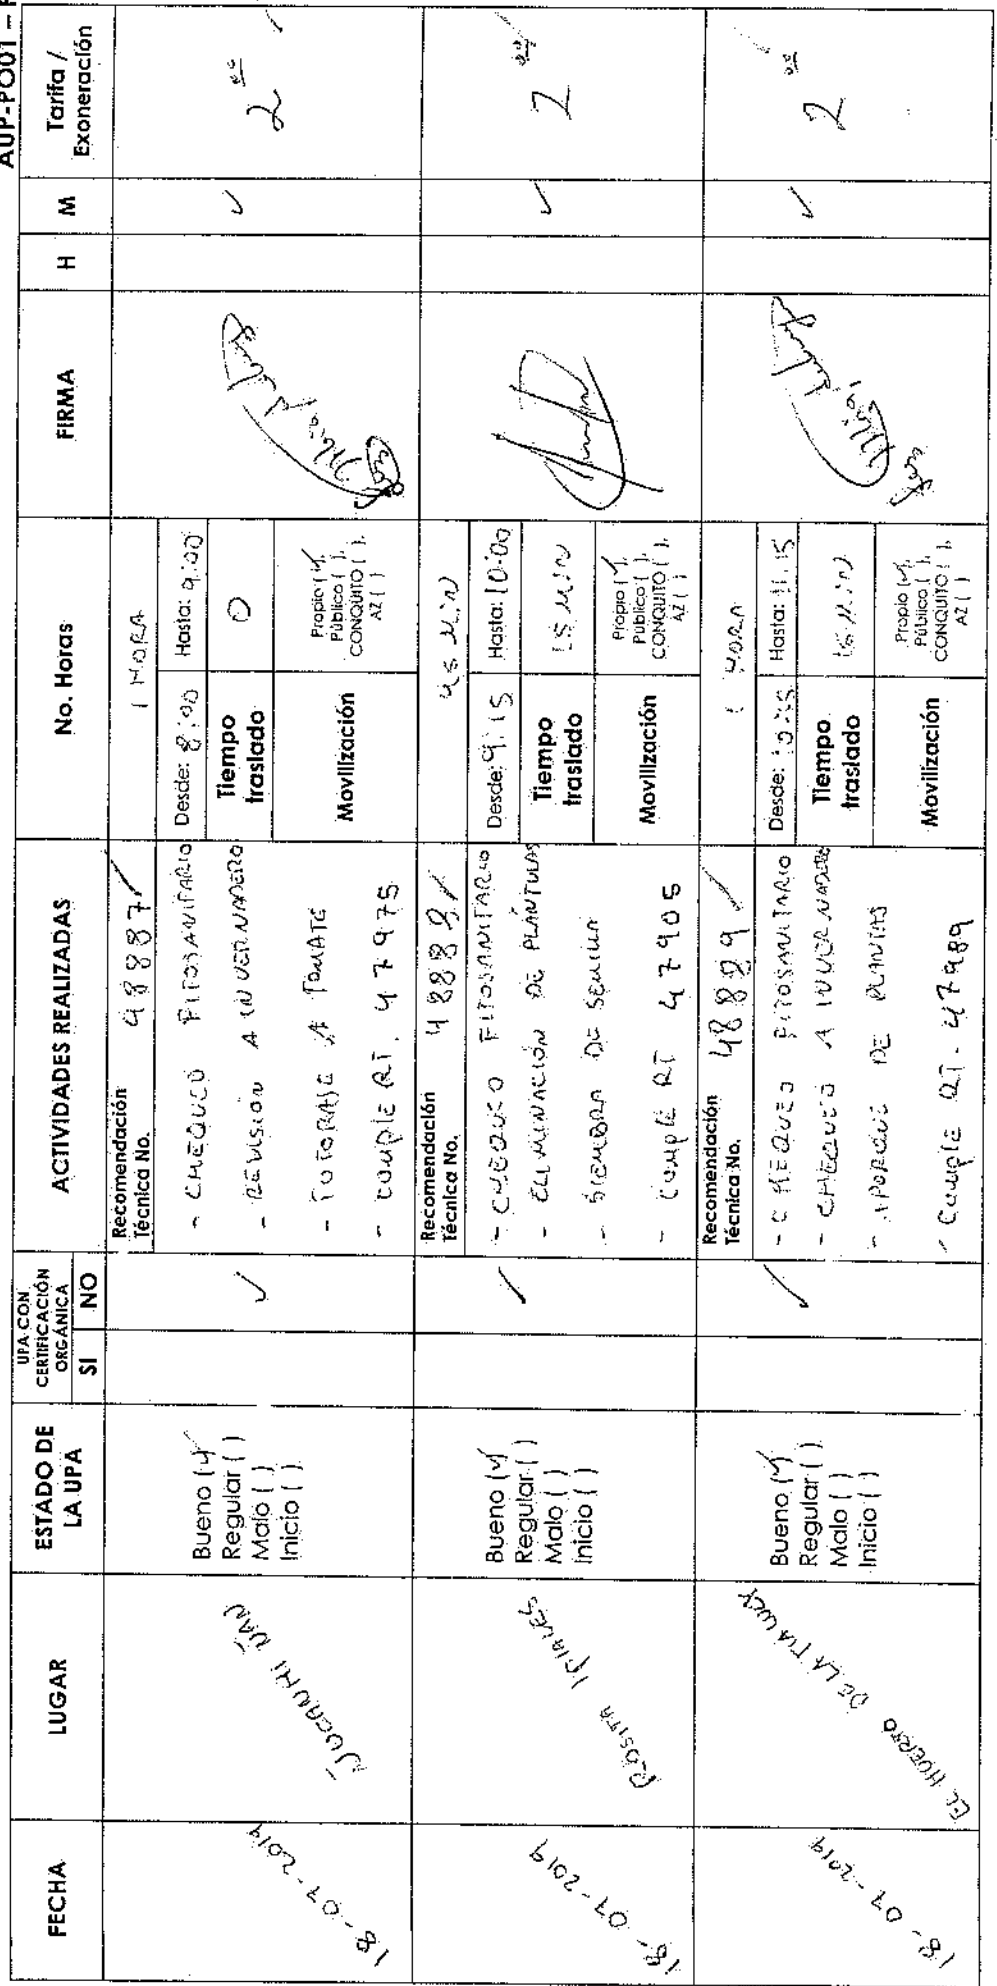 AUP-PO01 –
FECHA
LUGAR
ESTADO DE
LA UPA
UPA CON
CERTIFICACIÓN
ORGÁNICA
SI
NO
ACTIVIDADES REALIZADAS
No. Horas
FIRMA
H
M
Tarifa /
Exoneración
18-07-2019
JUCANHI ÑAN
Bueno (✓)
Regular ( )
Malo ( )
Inicio ( )
✓
Recomendación
Técnica No. 48887
- CHEQUEO FITOSANITARIO
- REVISIÓN A INVERNADERO
- TUTORAJE A TOMATE
- CUMPLE RT. 47975
1 HORA
Desde: 8:00 Hasta: 9:00
Tiempo
traslado
0
Movilización
Propio (✓)
Público ( ).
CONQUITO ( ).
AZ ( )
✓
2 00
18-07-2019
ROSITA IPIALES
Bueno (✓)
Regular ( )
Malo ( )
Inicio ( )
✓
Recomendación
Técnica No. 48888
- CHEQUEO FITOSANITARIO
- ELIMINACIÓN DE PLÁNTULAS
- SIEMBRA DE SEMILLA
- CUMPLE RT 47905
45 MIN
Desde: 9:15 Hasta: 10:00
Tiempo
traslado
15 MIN
Movilización
Propio (✓)
Público ( ).
CONQUITO ( ).
AZ ( )
✓
2 00
18-07-2019
EL HUERTO DE LA TIA LUCY
Bueno (✓)
Regular ( )
Malo ( )
Inicio ( )
✓
Recomendación
Técnica No. 48889
- CHEQUEO FITOSANITARIO
- CHEQUEO A INVERNADERO
- APORQUE DE PLANTAS
- CUMPLE RT. 47989
1 HORA
Desde: 10:15 Hasta: 11:15
Tiempo
traslado
15 MIN
Movilización
Propio (✓)
Público ( ).
CONQUITO ( ).
AZ ( )
✓
2 00